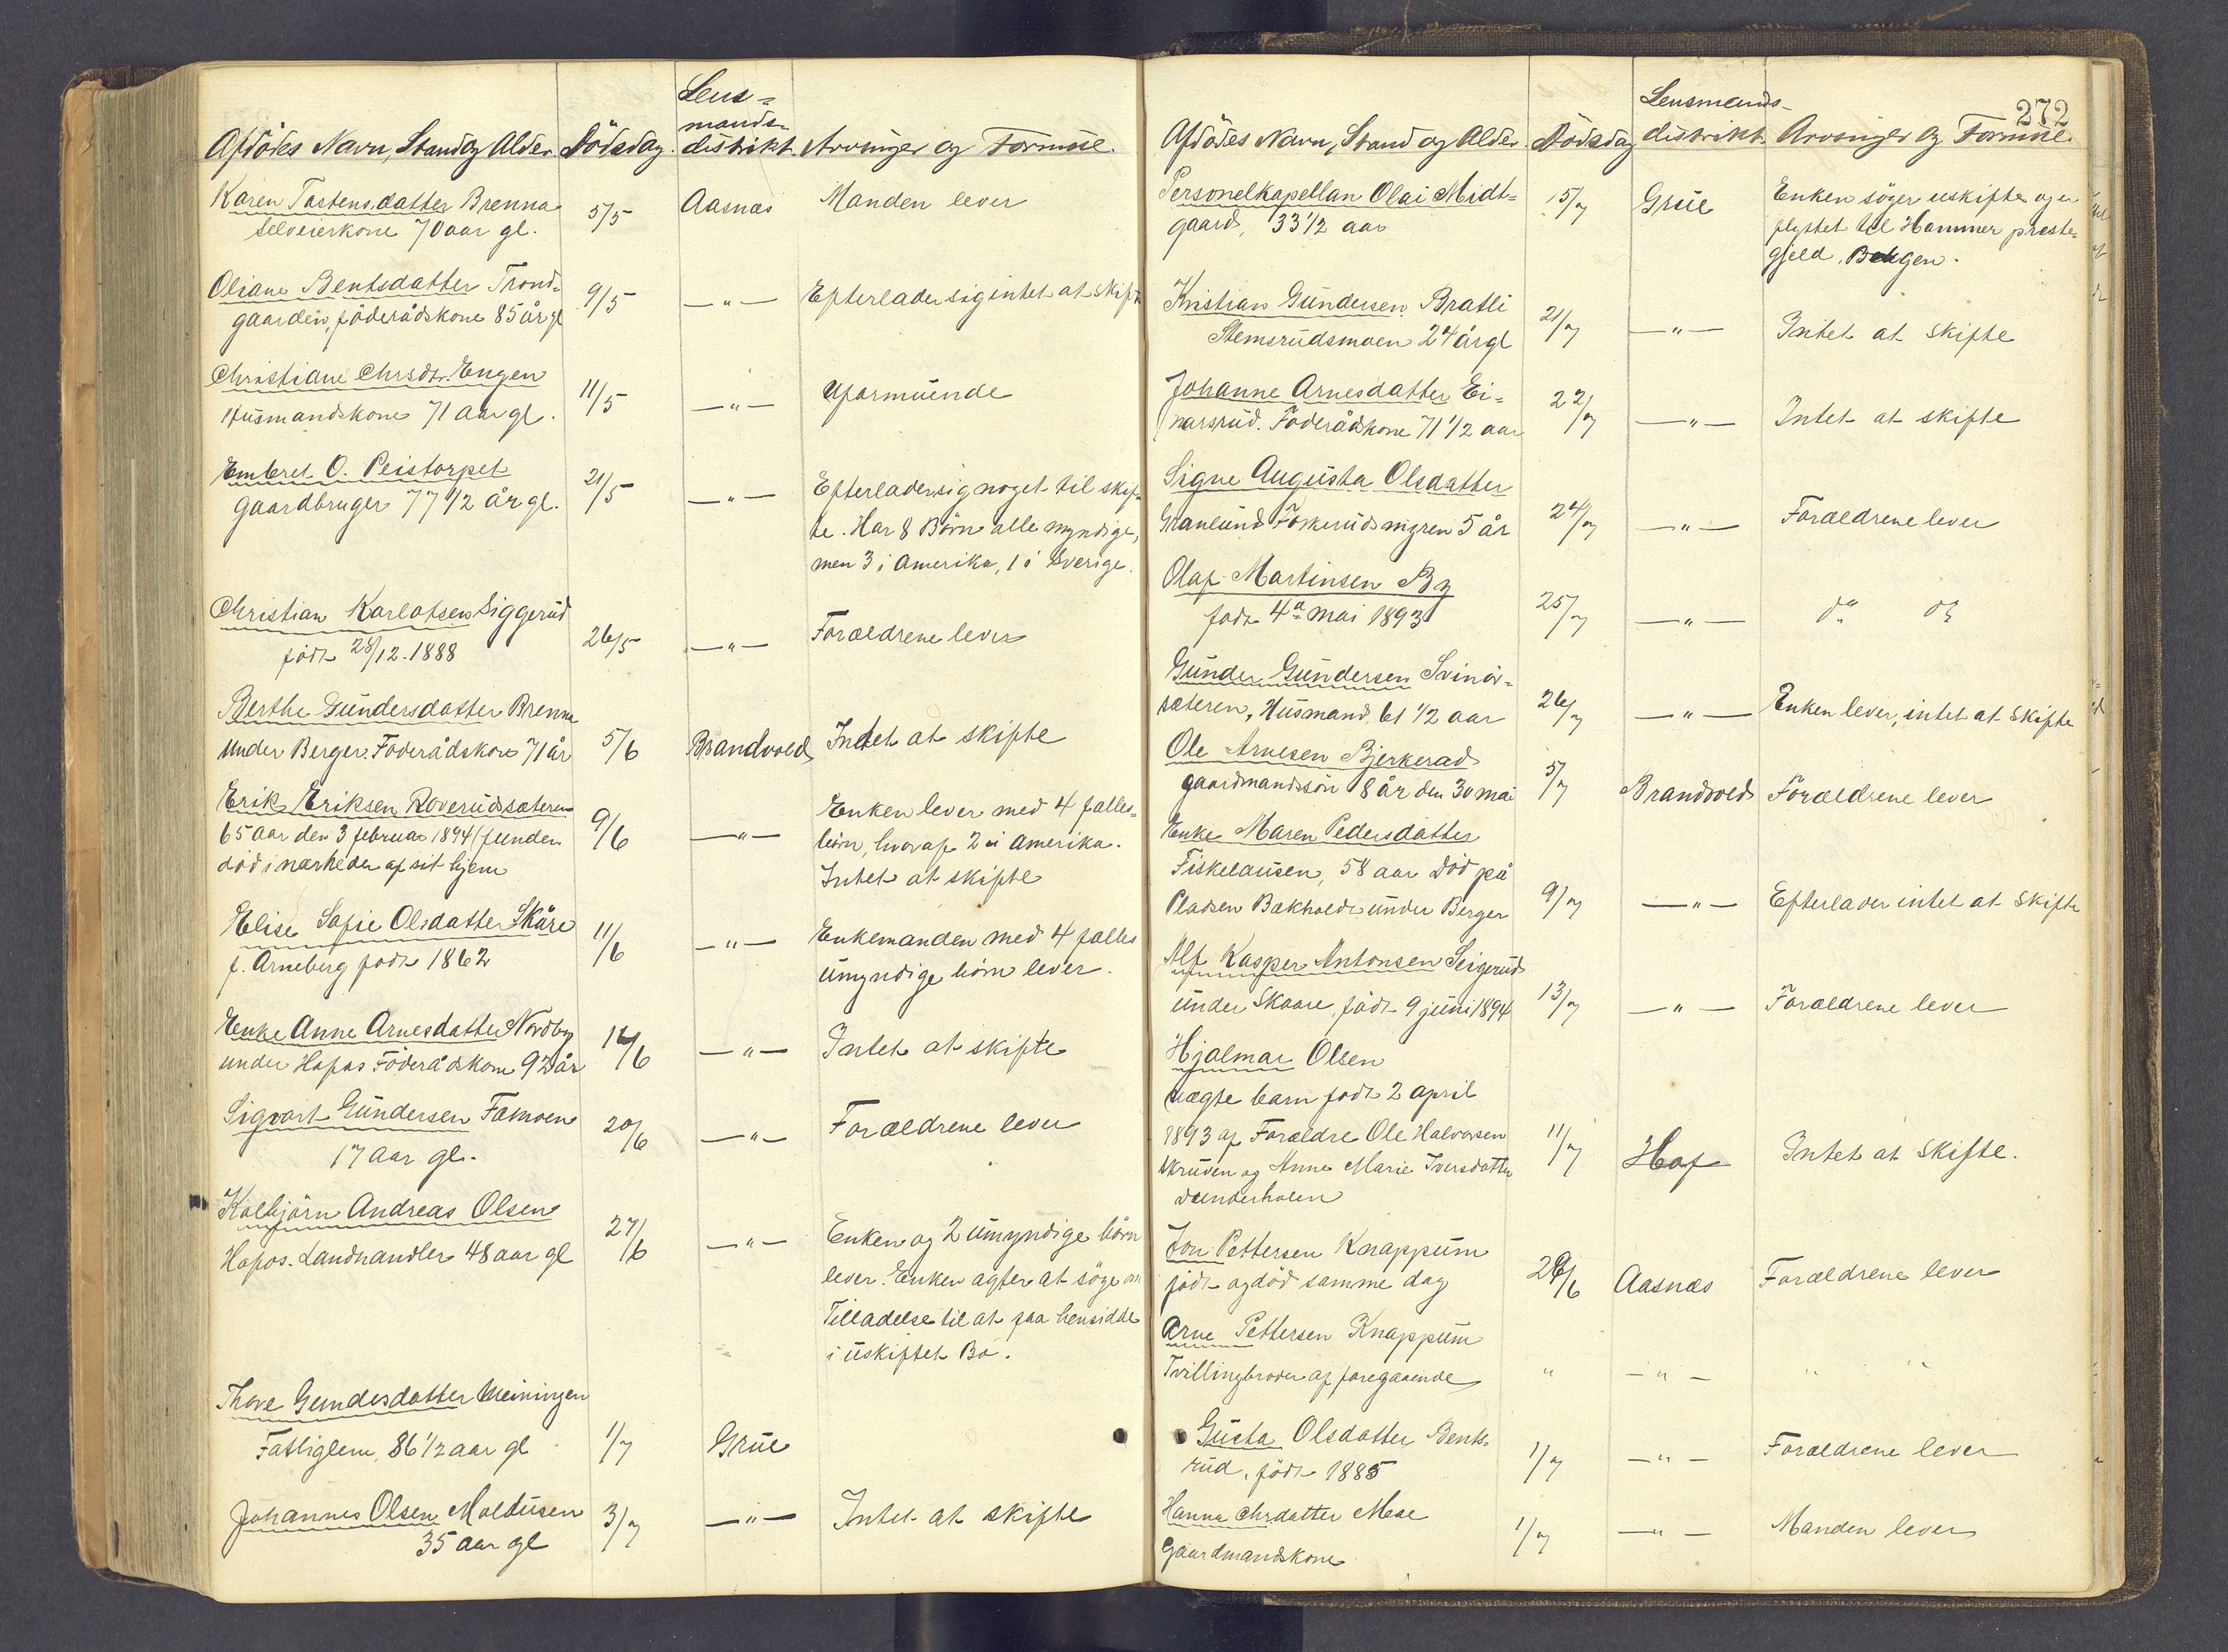 Afdödes Navn, Stand og Alder. Dödsdag. Lens-
mands-
distrikt. Arvinger og Formue.
Karen Tostensdatter Brenna 5/5 Aasnæs Manden lever
selveierkone 70 aar gl.
Oliane Bentsdatter Trond- 9/5 —"— Efterlader sig intet at skifte
gaarden, föderådskone 85 år gl
Christiane Chrsdtr. Engen 11/5 —"— Uformuende
Husmandskone 71 aar gl.
Embret O. Peistorpet 21/5 —"— Efterlader sig noget til skif-
gaardbruger 77 1/2 år gl. te. Har 8 Börn alle myndige,
men 3 i Amerika, 1 i Sverige.
Christian Karlotsen Siggerud 26/5 —"— Forældrene lever
födt 28/12. 1888
Berthe Gundersdatter Brenna
under Berger. Föderådskone 71 år 5/6 Brandvold Intet at skifte
Erik Eriksen Roverudsæteren 9/6 —"— Enken lever med 4 fælles-
65 aar den 3 februar 1894 (funden börn, hvoraf 2 i Amerika.
död i nærheden af sit hjem Intet at skifte
Elise Sofie Olsdatter Skåre 11/6 —"— Enkemanden med 4 fælles
f. Arneberg födt 1862 umyndige börn lever.
Enke Anne Arnesdatter Nordby 14/6 —"— Intet at skifte
under Hofos Föderådskone 92 år
Sigvart Gundersen Fæmoen 20/6 —"— Forældrene lever
17 aar gl.
Kolbjörn Andreas Olsen 27/6 —"— Enken og 2 umyndige börn
Hofos. Landhandler 48 aar gl lever. Enken agter at söge om
Tilladelse til at faa hensidde
i uskiftet Bo.
Thore Gundersdatter Meiningen
Fattiglem, 86 1/2 aar gl 1/7 Grue
Johannes Olsen Moldusen 3/7 —"— Intet at skifte
35 aar gl
272
Afdödes Navn, Stand og Alder. Dödsdag Lensmands-
distrikt. Arvinger og Formue.
Personelkapellan Olai Midt- 15/7 Grue Enken söger uskifte og er
gaard, 33 1/2 aar flyttet til Hammer præste-
gjeld, Bergen.
Kristian Gundersen Bratli 21/7 —"— Intet at skifte
Stemsrudsmoen 24 år gl
Johanne Arnesdatter Ei- 22/7 —"— Intet at skifte
narsrud. Föderådskone 71 1/2 aar
Signe Augusta Olsdatter
Granlund Foskerudsmyren 5 år 24/7 —"— Forældrene lever
Olaf Martinsen By
födt 4de mai 1893 25/7 —"— do do
Gunder Gundersen Svinör-
sæteren, Husmand, 61 1/2 aar 26/7 —"— Enken lever, intet at skifte
Ole Arnesen Bjerkerad
gaardmandssön 8 år den 30 mai 5/7 Brandvold Forældrene lever
Enke Maren Pedersdatter
Fiskelausen, 58 aar död på
Pladsen Bakholdt under Berger 9/7 —"— Efterlader intet at skifte
Alf Kasper Antonsen Seigerud
under Skaare, födt 9 juni 1894 13/7 —"— Forældrene lever
Hjalmar Olsen
uægte barn födt 2 april
1893 af Forældre Ole Halvorsen 11/7 Hof Intet at skifte.
Skruven og Anne Marie Iversdatter
Dunderholen
Jon Pettersen Knappum
födt og död samme dag 26/6 Aasnæs Forældrene lever
Arne Pettersen Knappum
Tvillingbroder af foregaaende " —"— "
Gusta Olsdatter Bents-
rud, födt 1885 1/7 —"— Forældrene lever
Hanna Chrdatter Moe 1/7 —"— Manden lever
Gaardmandskone